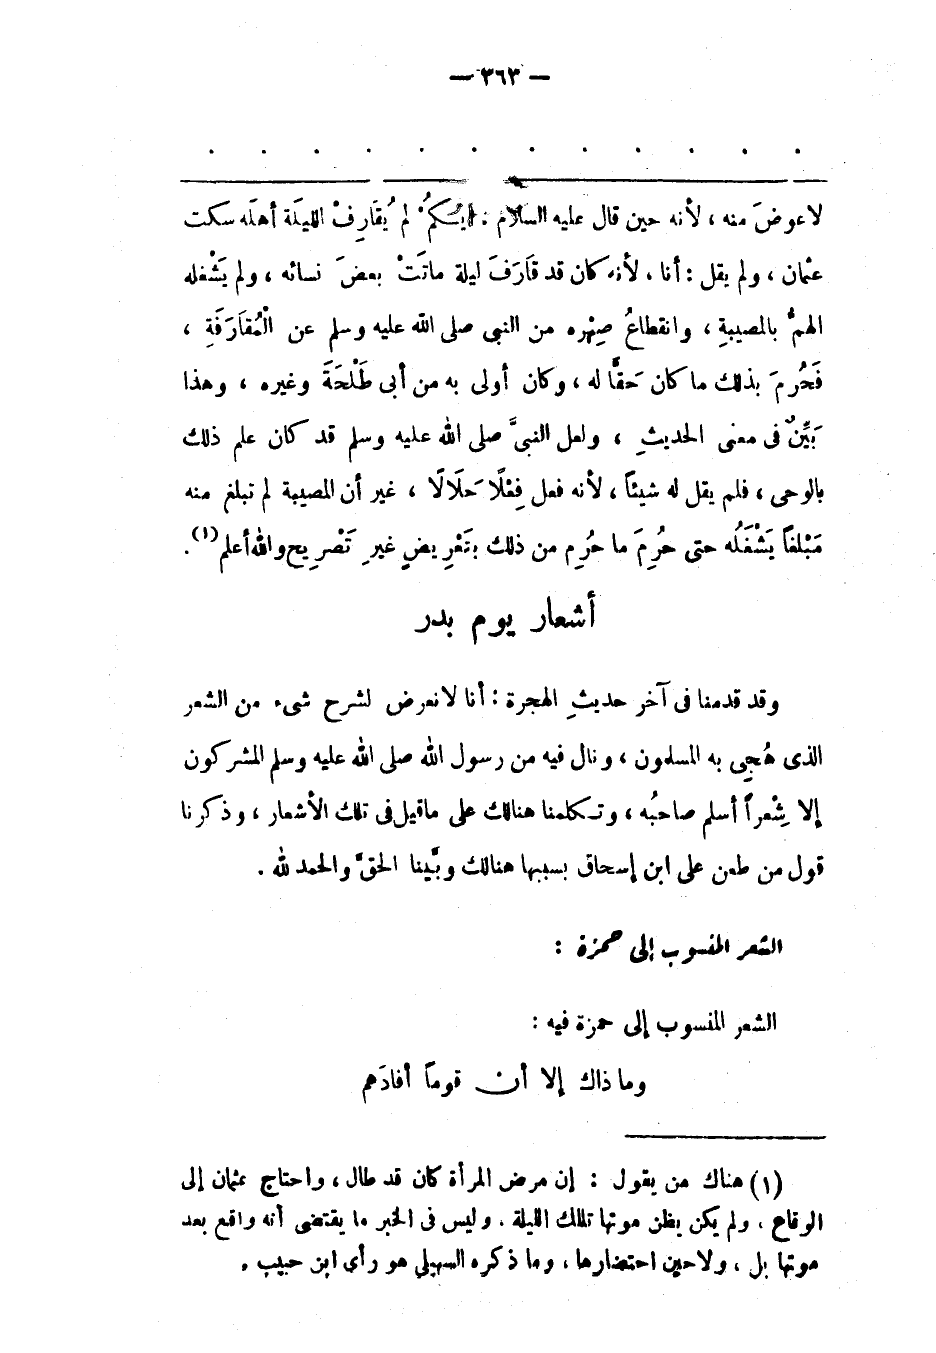 — ٣٦٣ —
. . . . . . . . . . . .
لا عوضَ منه ، لأنه حين قال عليه السلام : أيُّكمُ لم يُقَارِفْ الليلَة أهلَه سكت
عثمان ، ولم يقل : أنا ، لأنه كان قد قَارَفَ ليلة ماتَتْ بعضَ نسائه ، ولم يَشْغله
الهمُّ بالمصيبةِ ، وانقطاعُ صِهْرِه من النبى صلى الله عليه وسلم عن الْمُقَارَفَةِ ،
فَحُرِمَ بذلك ما كان حَقًّا له ، وكان أولى به من أبى طَلْحَةَ وغيره ، وهذا
بَيِّنٌ فى معنى الحديثِ ، ولعل النبىَّ صلى الله عليه وسلم قد كان علم ذلك
بالوحى ، فلم يقل له شيئاً ، لأنه فعل فِعْلًا حَلَالًا ، غير أن المصيبة لم تبلغ منه
مَبْلغاً يَشْغَلُه حتى حُرِمَ ما حُرِم من ذلك بتَعْرِيضٍ غيرِ تَصْرِيح والله أعلم (١) .
أشعار يوم بدر
وقد قدمنا فى آخر حديثِ الهجرة : أنا لا نعرض لشرح شىء من الشعر
الذى هُجِى به المسلمون ، ونال فيه من رسول الله صلى الله عليه وسلم المشركون
إلا شِعْراً أسلم صاحبُه ، وتكلمنا هنالك على ماقيل فى تلك الأشعار ، وذكرنا
قول من طعن على ابن إسحاق بسببها هنالك وبَّينا الحقَّ والحمد لله .
الشعر المنسوب إلى حمزة :
الشعر المنسوب إلى حمزة فيه :
وما ذاك إلا أن قوماً أفادَهم
(١) هناك من يقول : إن مرض المرأة كان قد طال ، واحتاج عثمان إلى
الوقاع ، ولم يكن يظن موتها تلك الليلة . وليس فى الخبر ما يقتضى أنه واقع بعد
موتها بل ، ولا حين احتضارها ، وما ذكره السهيلى هو رأى ابن حبيب .